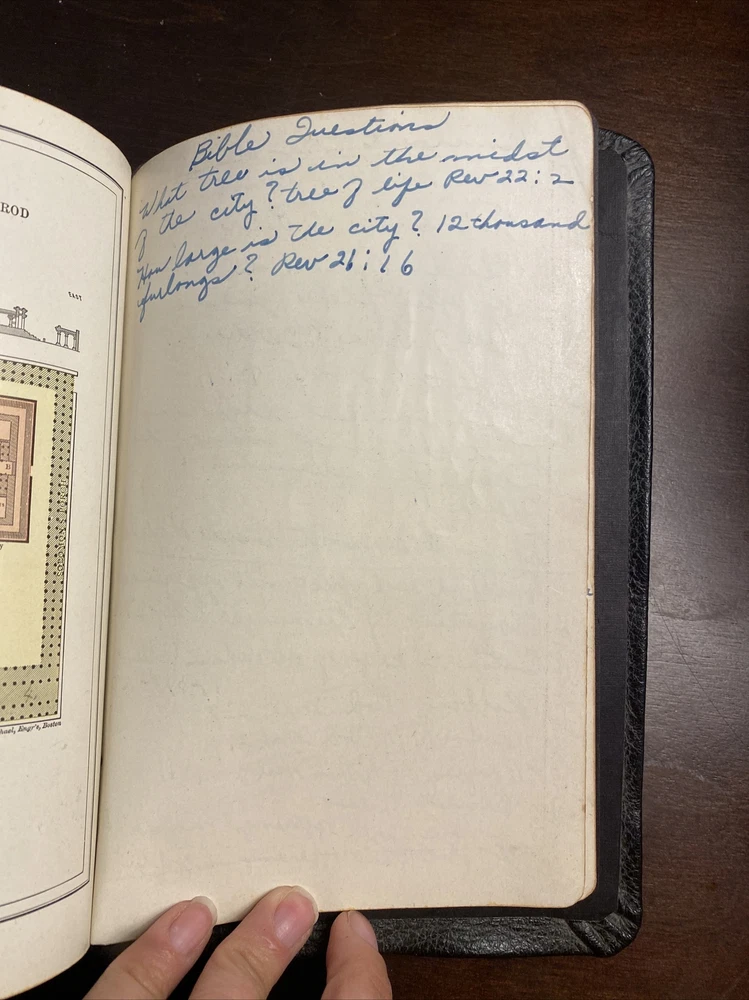 ROD
EAST
SOLOMON'S PORCH
hael, Engr's, Boston
Bible Questions
What tree is in the midst
of the city? tree of life Rev 22:2
How large is the city? 12 thousand
furlongs? Rev 21:16